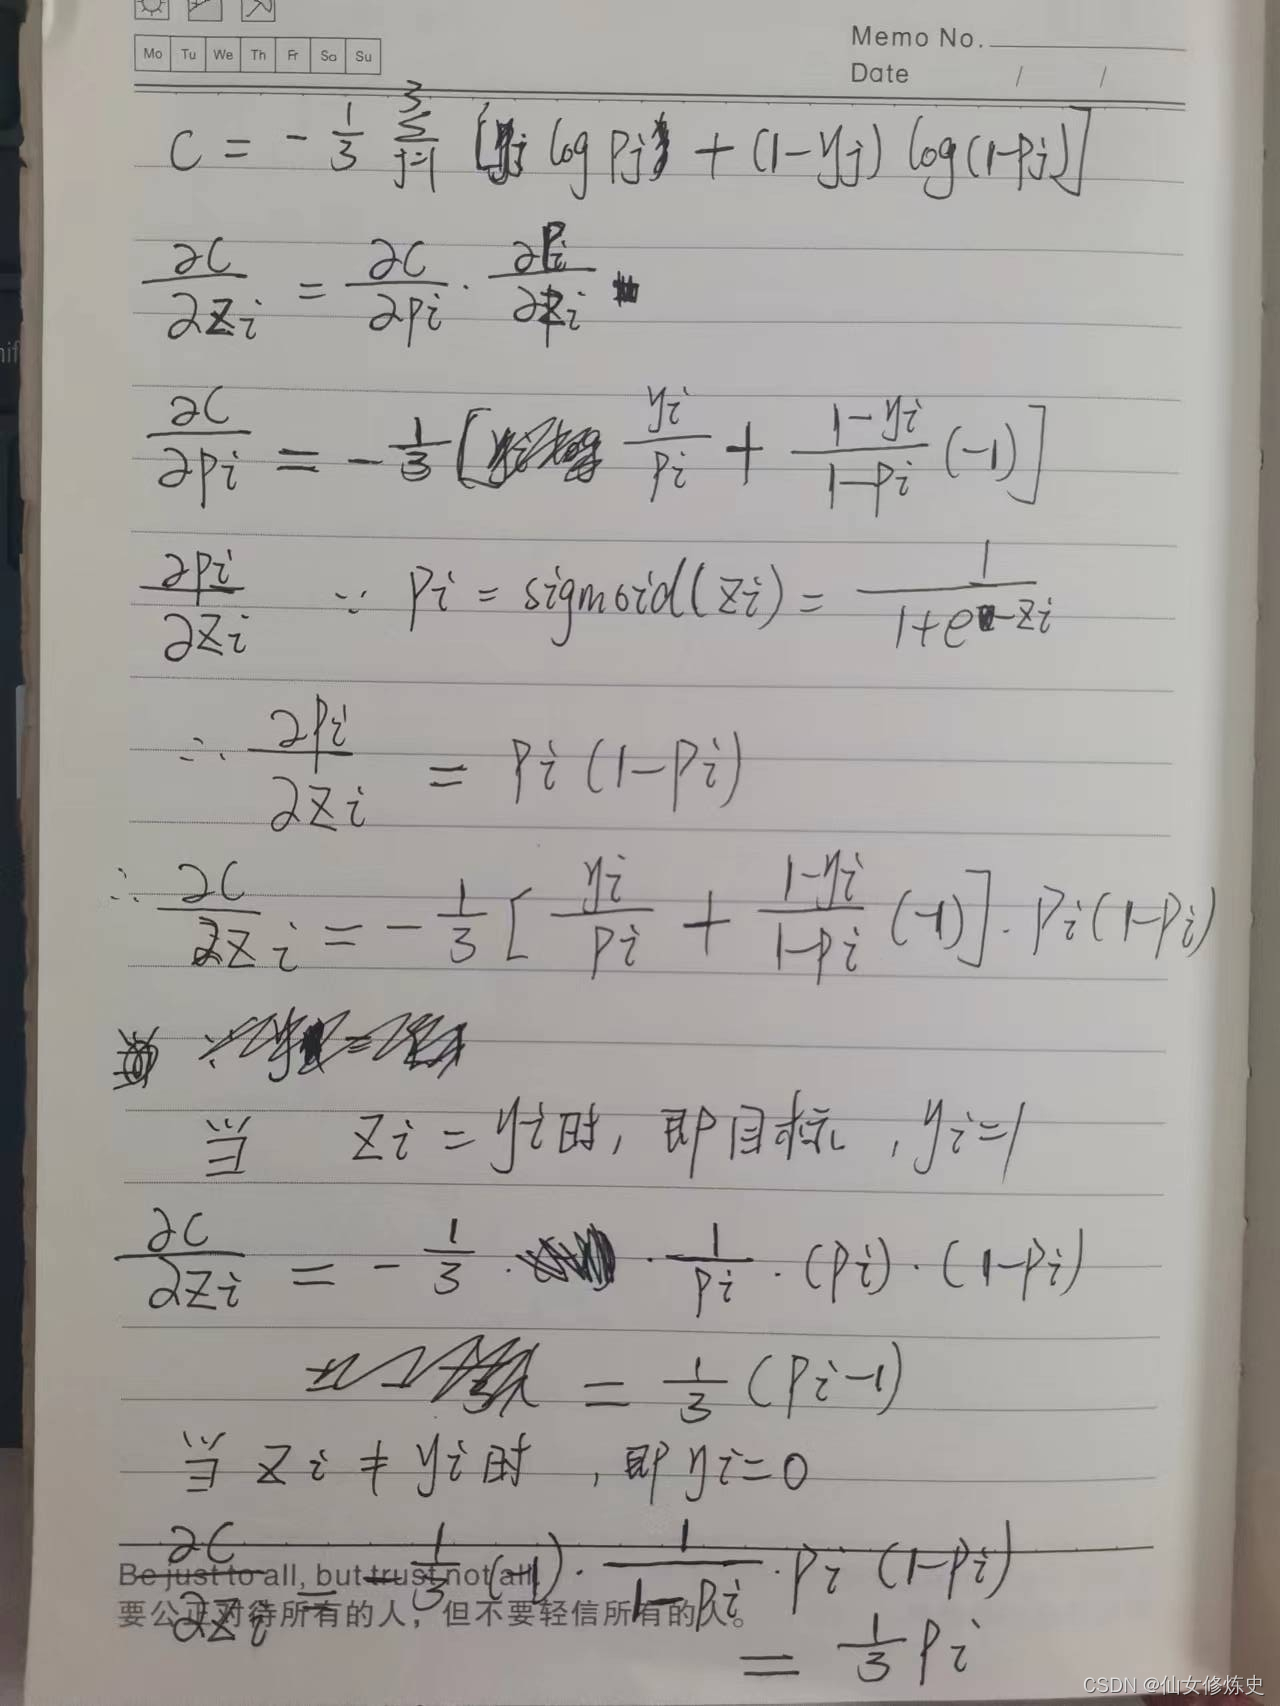 Mo Tu We Th Fr Sa Su
Memo No.
Date / /
C = - 1/3 Σ_{j=1}^{3} [yj log pj + (1-yj) log(1-pj)]
∂C/∂zi = ∂C/∂pi · ∂pi/∂zi
∂C/∂pi = - 1/3 [ yi/pi + (1-yi)/(1-pi) (-1) ]
∂pi/∂zi ∵ pi = sigmoid(zi) = 1/(1+e^{-zi})
∴ ∂pi/∂zi = pi (1-pi)
∴ ∂C/∂zi = - 1/3 [ yi/pi + (1-yi)/(1-pi) (-1) ] · pi (1-pi)
当 zi = yi 时, 即目标, yi=1
∂C/∂zi = - 1/3 · 1/pi · (pi) · (1-pi)
= 1/3 (pi-1)
当 zi ≠ yi 时, 即 yi=0
∂C/∂zi = - 1/3 (-1) · 1/(1-pi) · pi (1-pi)
Be just to all, but trust not all.
要公正对待所有的人，但不要轻信所有的人。
= 1/3 pi
CSDN @仙女修炼史